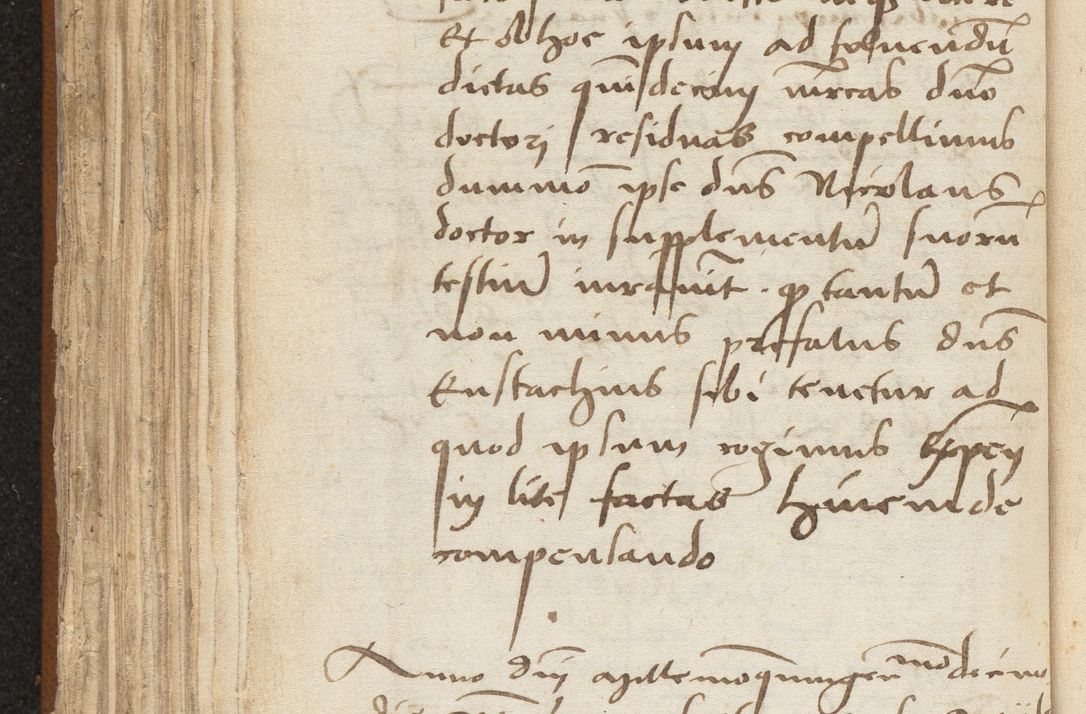 Et Ad hoc ipsum ad soluendū
dictas quīdecim mr̄cas dn̄o
doctori residuas compellimus
dummō ipse dn̄s Nicolaus
doctor in supplementū suorū
testiū iurauīt . ꝙ tantū et
non minus prefatus dn̄s
Eustachius sibi tenetur ad
quod ipsum cogimus Expen̄
in lite factas hincinde
compensando
Anno dnī Millemoquingenmodecimo